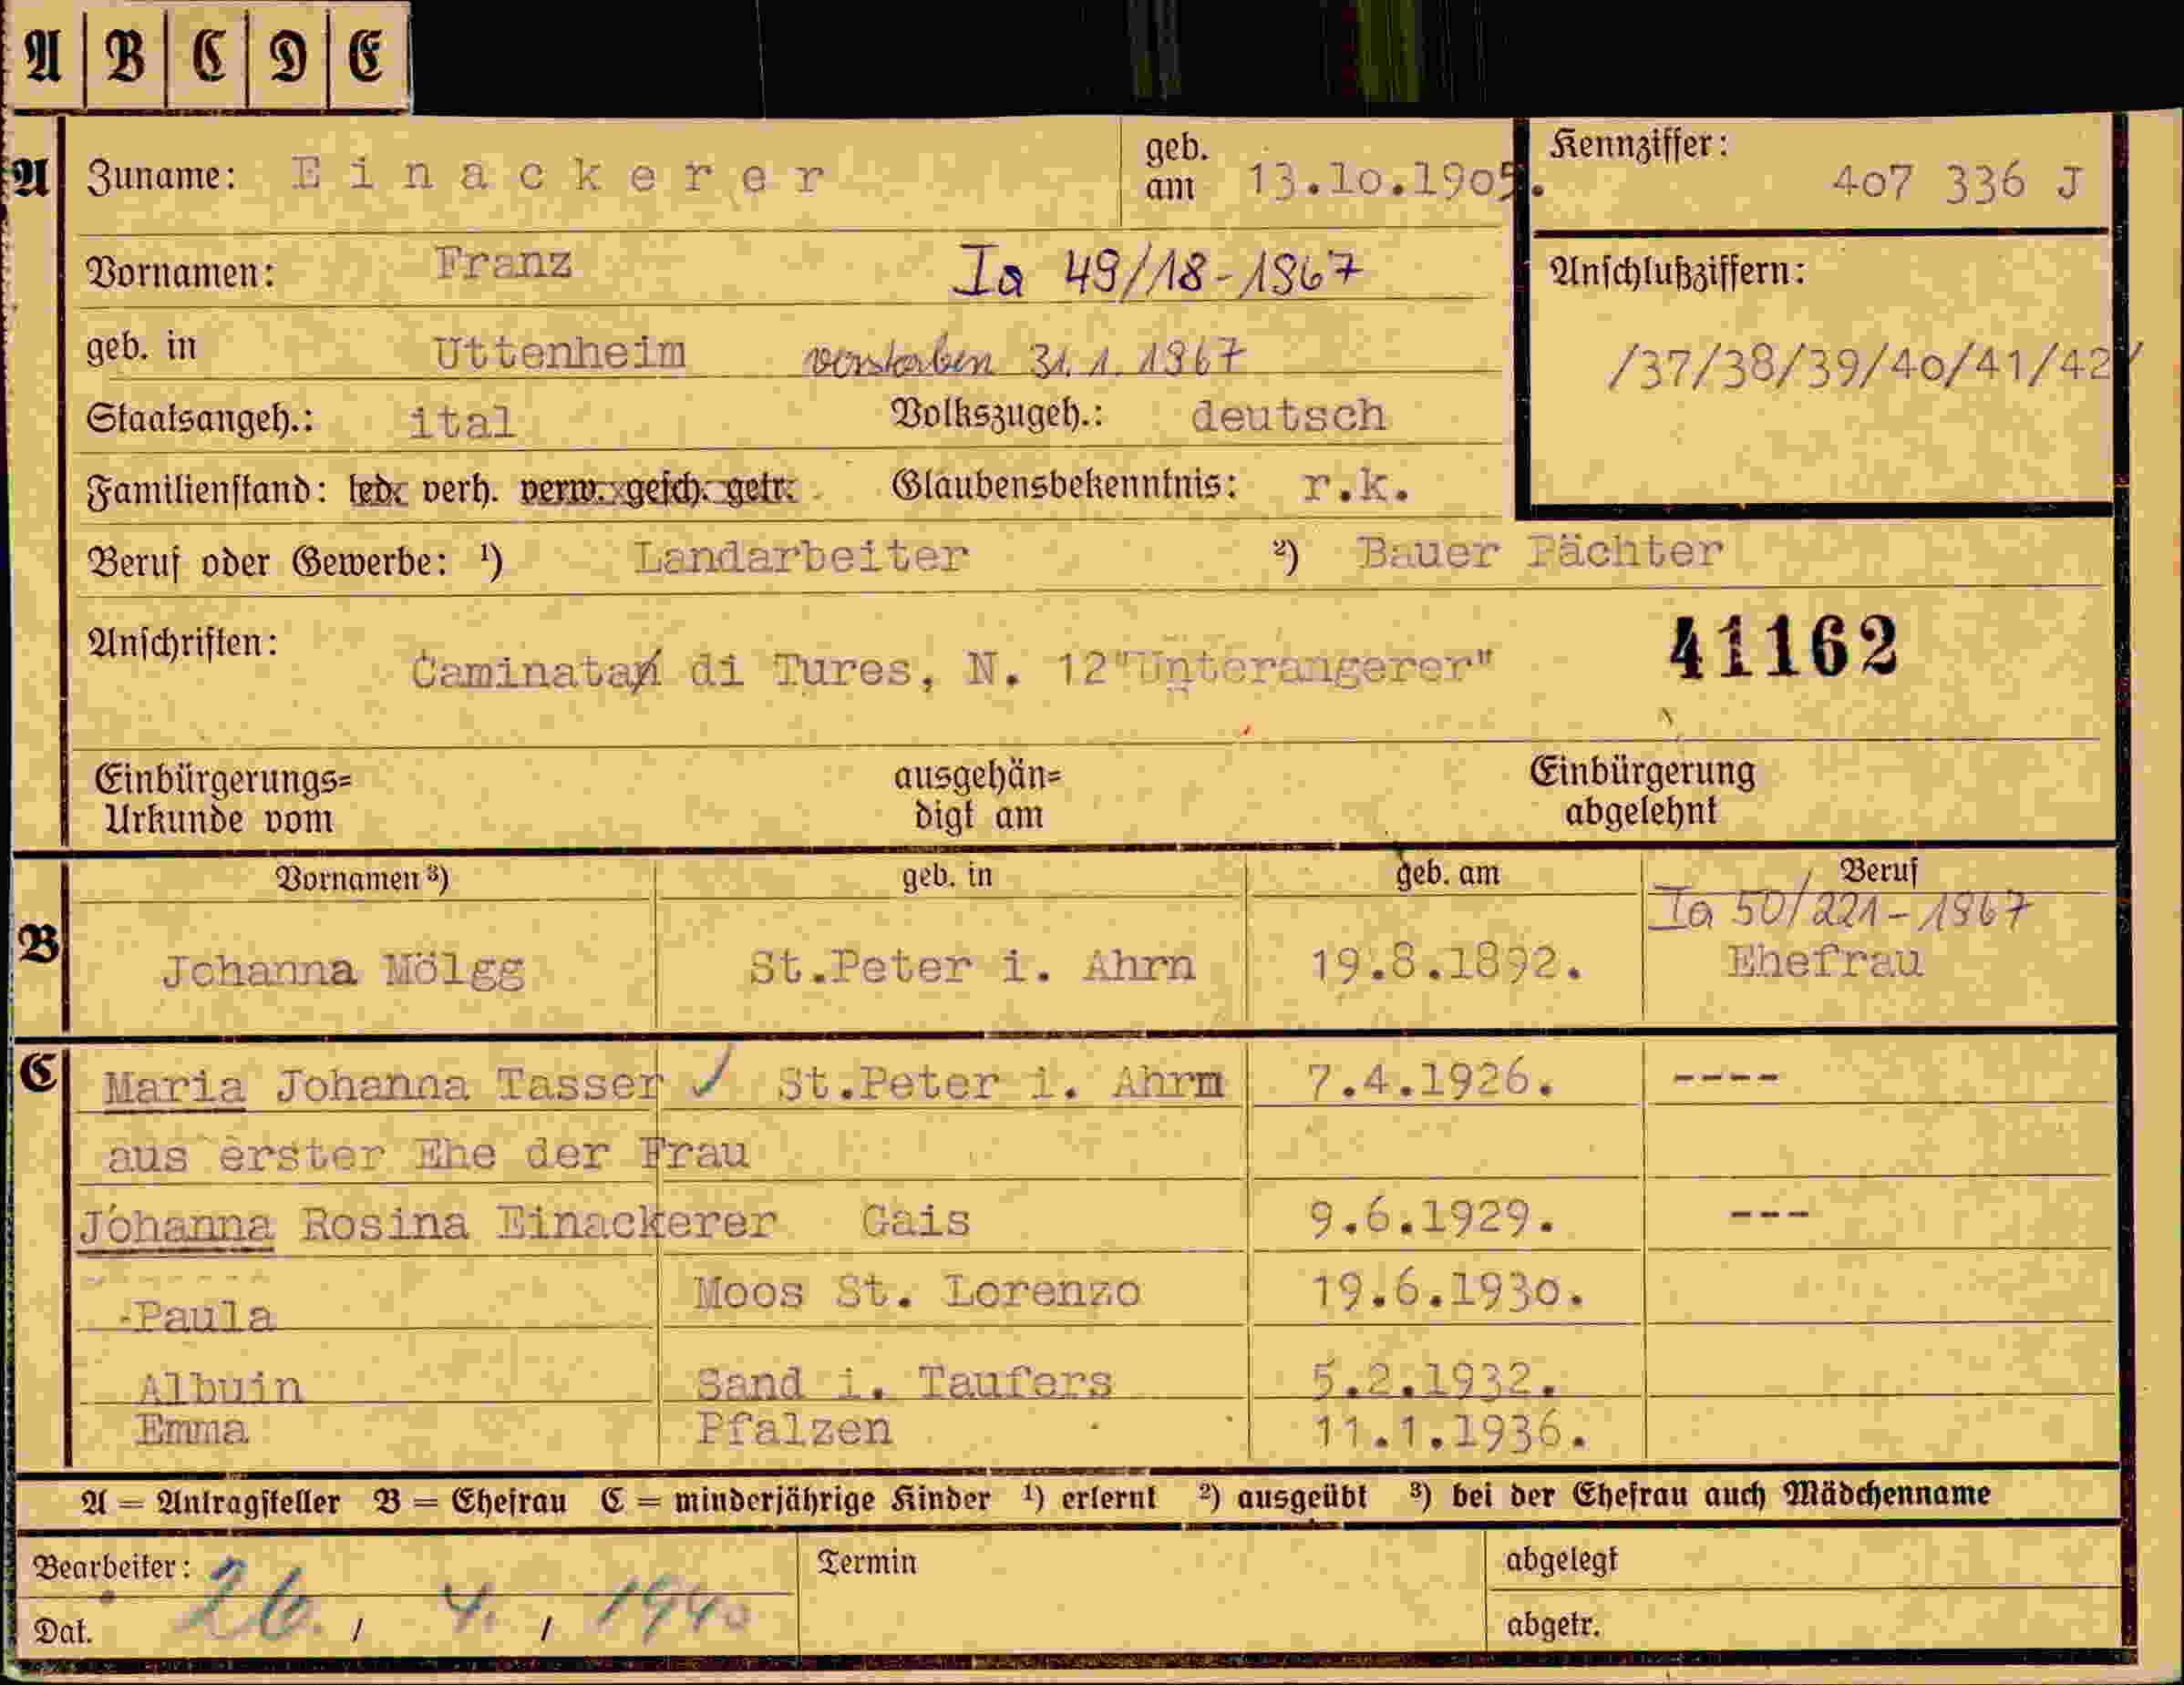 A B C D E
A Zuname: Einackerer geb. am 13.10.1905. Kennziffer: 407 336 J
Vornamen: Franz Ia 49/18-1967 Anschlußziffern:
geb. in Uttenheim verstorben 31.1.1967 /37/38/39/40/41/42/
Staatsangeh.: ital Volkszugeh.: deutsch
Familienstand: led. verh. verw. gesch. getr. Glaubensbekenntnis: r.k.
Beruf oder Gewerbe: ¹) Landarbeiter ²) Bauer Pächter
Anschriften: Caminatan di Tures, N. 12"Unterangerer" 41162
Einbürgerungs= ausgehän= Einbürgerung
Urkunde vom digt am abgelehnt
Vornamen ³) geb. in geb. am Beruf
Ia 50/221-1967
B Johanna Mölgg St.Peter i. Ahrn 19.8.1892. Ehefrau
C Maria Johanna Tasser ✓ St.Peter i. Ahrm 7.4.1926. ----
aus erster Ehe der Frau
Johanna Rosina Einackerer Gais 9.6.1929. ---
-Paula Moos St. Lorenzo 19.6.1930.
Albuin Sand i. Taufers 5.2.1932.
Emma Pfalzen 11.1.1936.
A = Antragsteller B = Ehefrau C = minderjährige Kinder ¹) erlernt ²) ausgeübt ³) bei der Ehefrau auch Mädchenname
Bearbeiter: Termin abgelegt
Dat. 26. / 4. / 1940 abgetr.